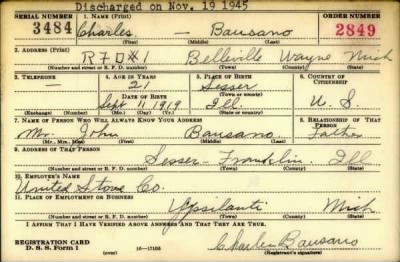 Discharged on Nov. 19 1945
SERIAL NUMBER 1. NAME (Print) ORDER NUMBER
3484 Charles — Bausano 2849
(First) (Middle) (Last)
2. ADDRESS (Print)
RFD #1 Belleville Wayne Mich
(Number and street or R. F. D. number) (Town) (County) (State)
3. TELEPHONE 4. AGE IN YEARS 5. PLACE OF BIRTH 6. COUNTRY OF CITIZENSHIP
— 21 Sesser
DATE OF BIRTH (Town or county)
Sept 11 1919 Ill. U. S.
(Exchange) (Number) (Mo.) (Day) (Yr.) (State or country)
7. NAME OF PERSON WHO WILL ALWAYS KNOW YOUR ADDRESS 8. RELATIONSHIP OF THAT PERSON
Mr. John Bausano Father
(Mr., Mrs., Miss) (First) (Middle) (Last)
9. ADDRESS OF THAT PERSON
Sesser - Franklin. Ill
(Number and street or R. F. D. number) (Town) (County) (State)
10. EMPLOYER'S NAME
United Stove Co.
11. PLACE OF EMPLOYMENT OR BUSINESS
Ypsilanti Mich
(Number and street or R. F. D. number) (Town) (County) (State)
I AFFIRM THAT I HAVE VERIFIED ABOVE ANSWERS AND THAT THEY ARE TRUE.
REGISTRATION CARD
D. S. S. Form 1 16—17105 Charles Bausano
(Registrant's signature)